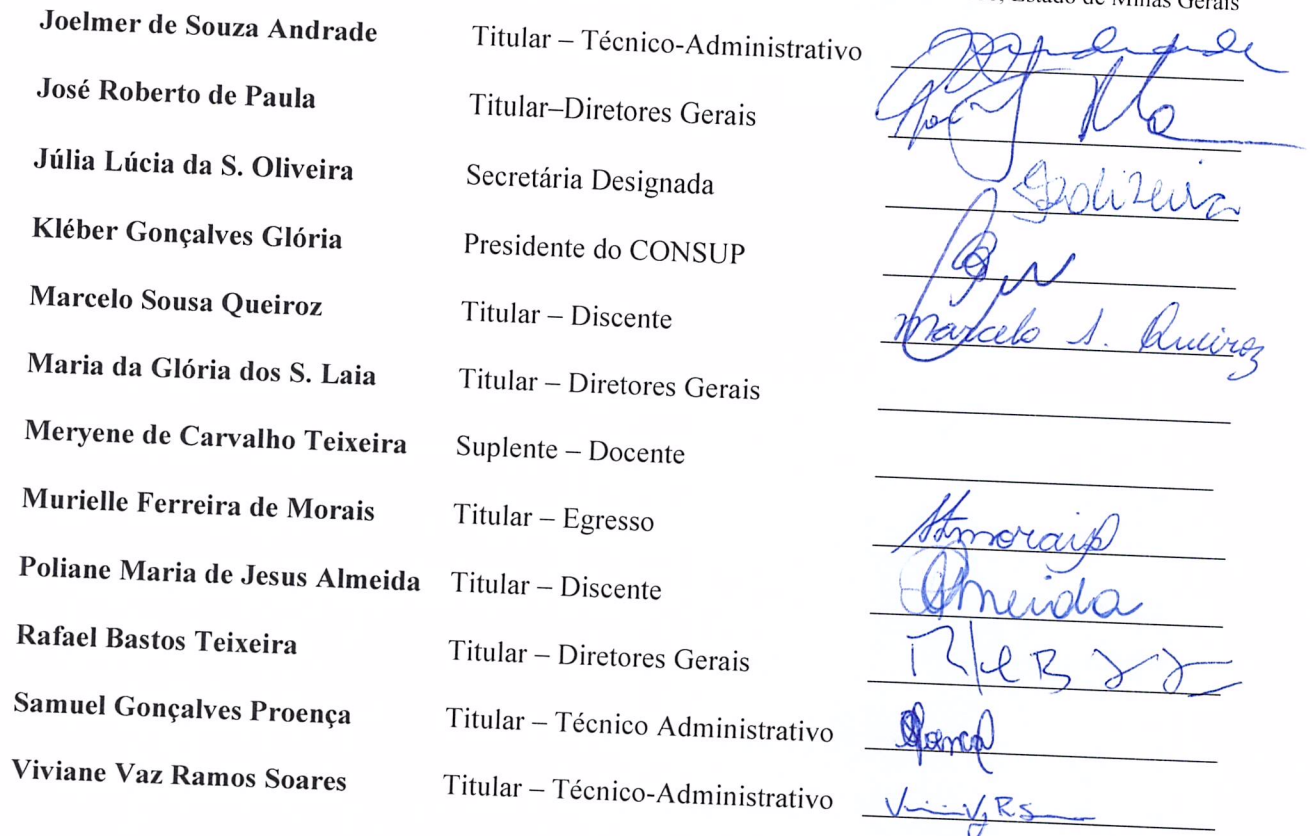 Estado de Minas Gerais
Joelmer de Souza Andrade Titular – Técnico-Administrativo
José Roberto de Paula Titular–Diretores Gerais
Júlia Lúcia da S. Oliveira Secretária Designada
Kléber Gonçalves Glória Presidente do CONSUP
Marcelo Sousa Queiroz Titular – Discente Marcelo S. Queiroz
Maria da Glória dos S. Laia Titular – Diretores Gerais
Meryene de Carvalho Teixeira Suplente – Docente
Murielle Ferreira de Morais Titular – Egresso
Poliane Maria de Jesus Almeida Titular – Discente Almeida
Rafael Bastos Teixeira Titular – Diretores Gerais
Samuel Gonçalves Proença Titular – Técnico Administrativo
Viviane Vaz Ramos Soares Titular – Técnico-Administrativo